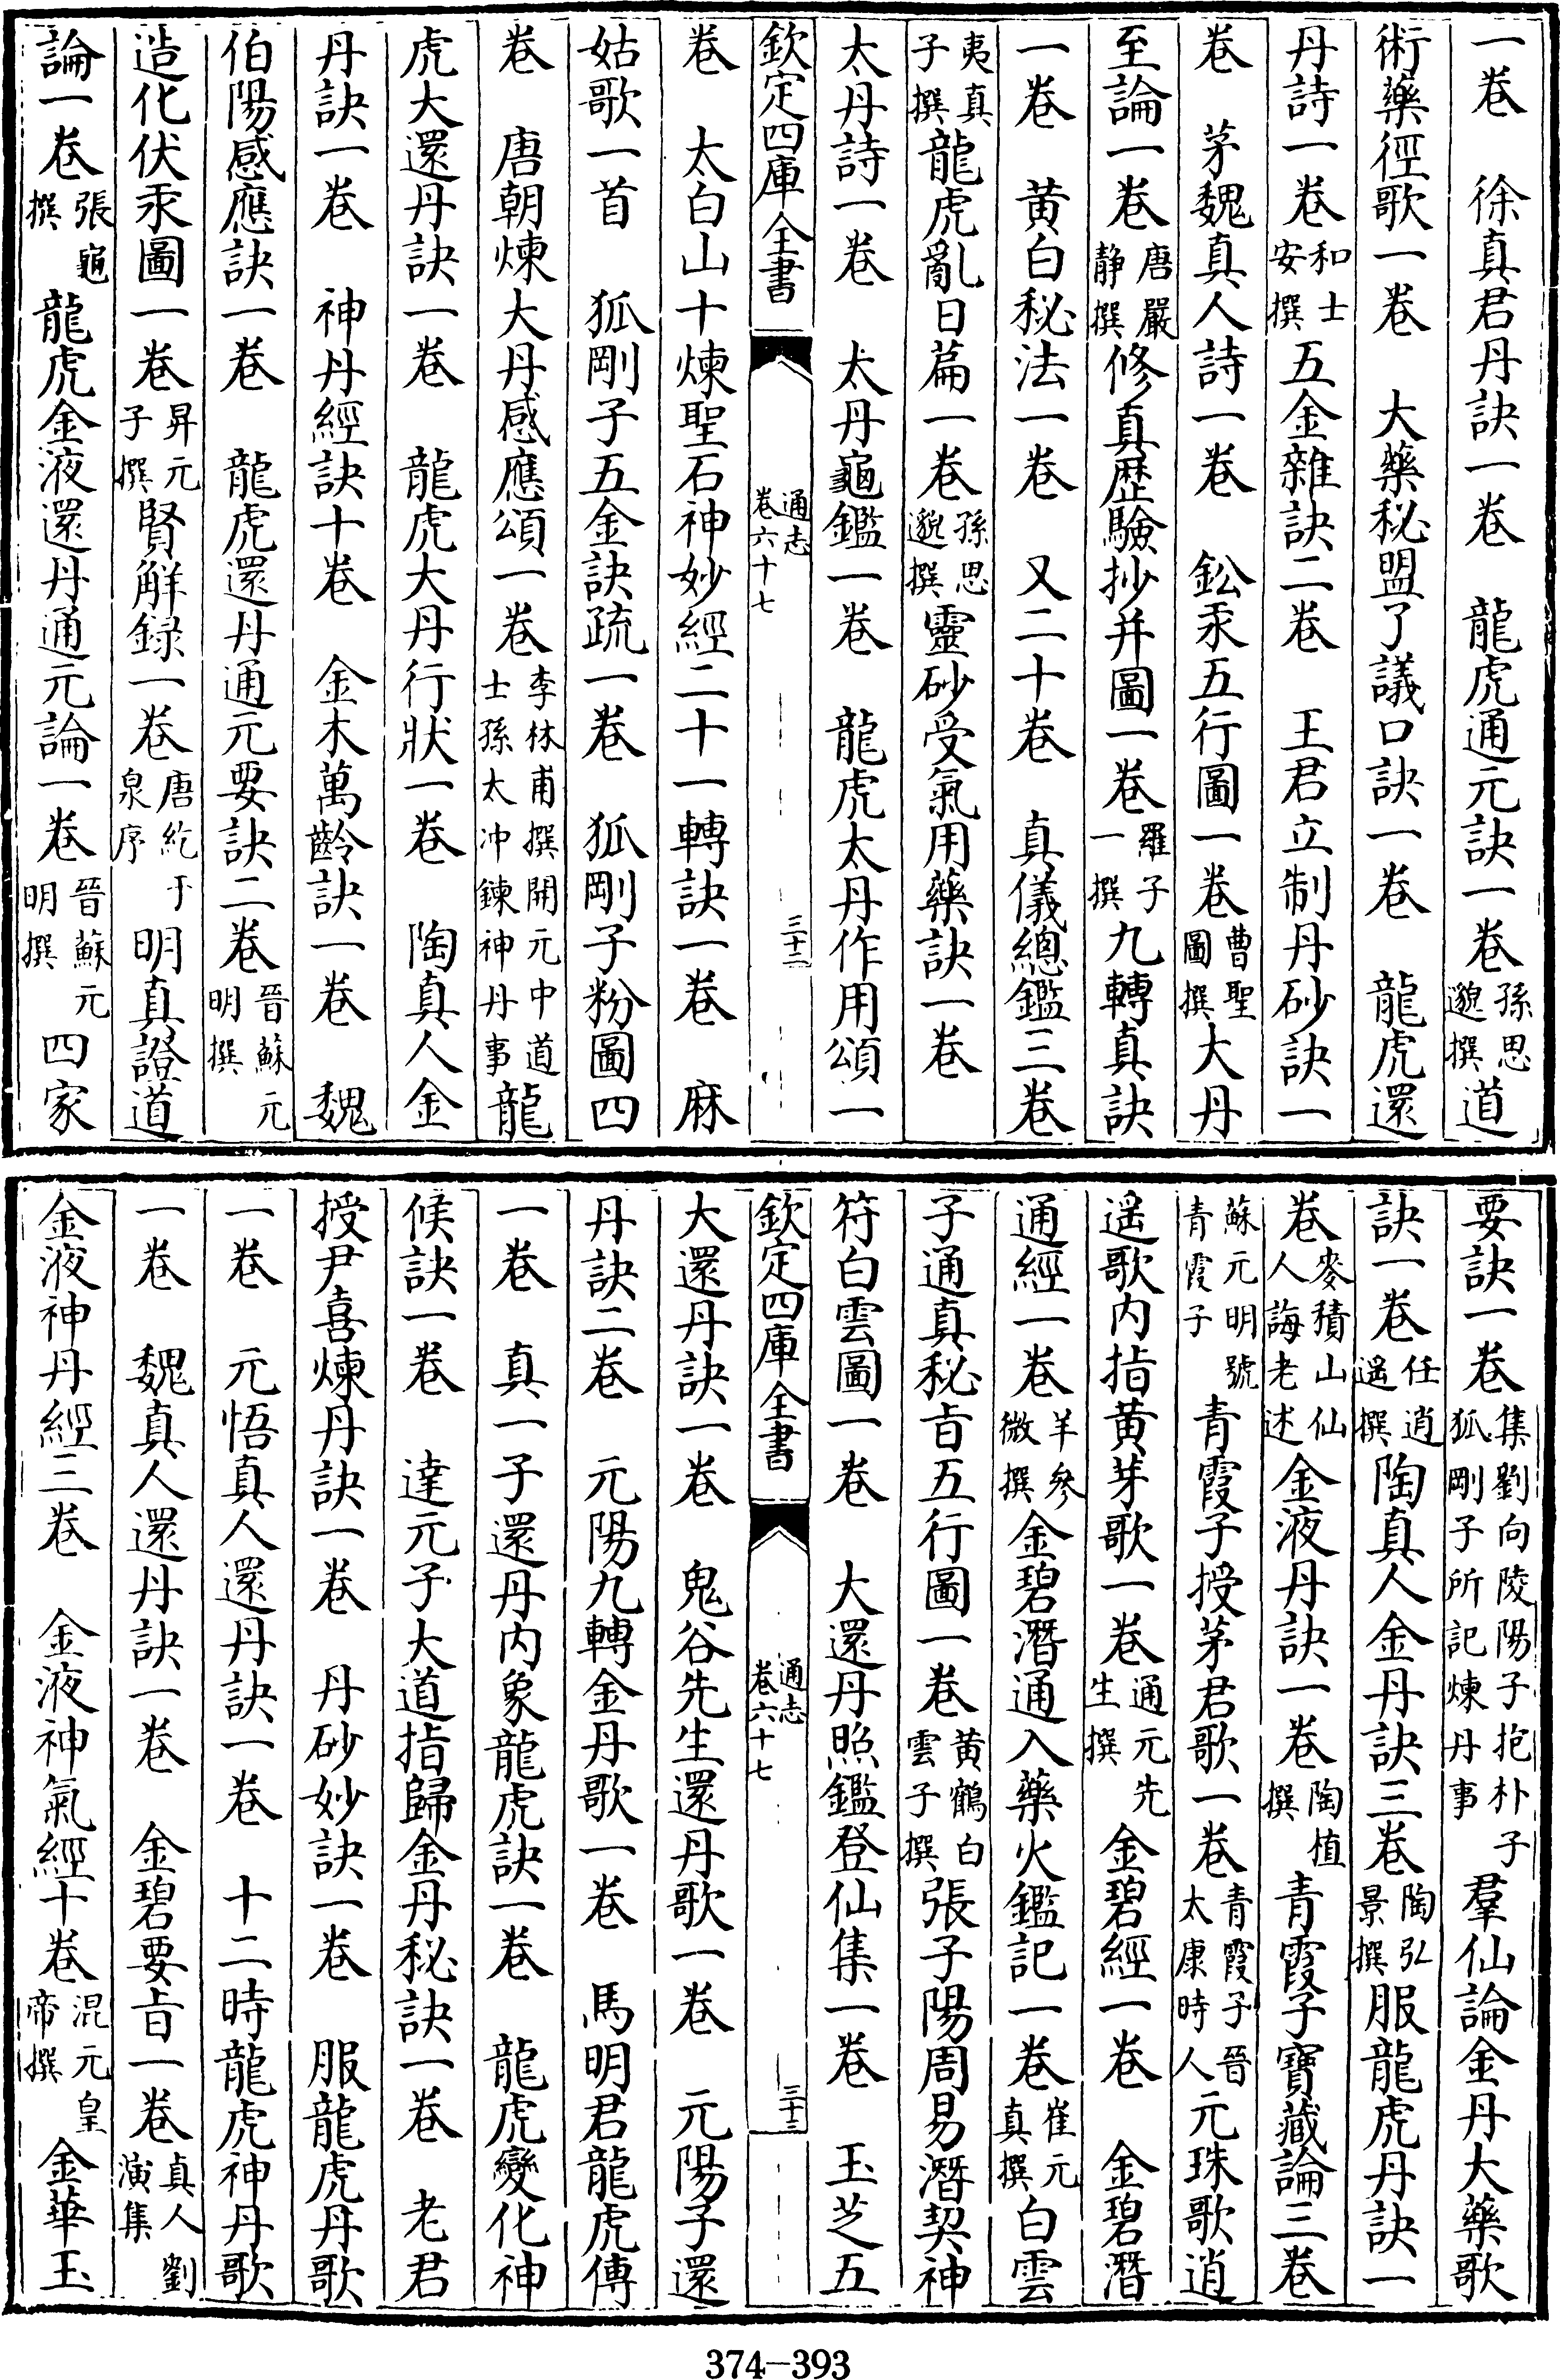 一巻　徐真君丹訣一巻　龍虎通元訣一巻孫思邈撰道
術藥徑歌一巻　大藥秘盟了議口訣一巻　龍虎還
丹詩一巻和士安撰五金雜訣二巻　王君立制丹砂訣一
巻　茅魏真人詩一巻　鈆汞五行圖一巻曹聖圖撰大丹
至論一巻唐嚴静撰修真歴驗抄并圖一巻羅子一撰九轉真訣
一巻　黄白秘法一巻　又二十巻　真儀總鑑三巻
夷真子撰龍虎亂日篇一巻孫思邈撰靈砂受氣用藥訣一巻
太丹詩一巻　太丹龜鑑一巻　龍虎太丹作用頌一
欽定四庫全書　通志巻六十七　三十二
巻　太白山十煉聖石神妙經二十一轉訣一巻　麻
姑歌一首　狐剛子五金訣疏一巻　狐剛子粉圖四
巻　唐朝煉大丹感應頌一巻李林甫撰開元中道士孫太冲鍊神丹事龍
虎大還丹訣一巻　龍虎大丹行狀一巻　陶真人金
丹訣一巻　神丹經訣十巻　金木萬齡訣一巻　魏
伯陽感應訣一巻　龍虎還丹通元要訣二巻晉蘇元明撰
造化伏汞圖一巻昇元子撰賢解録一巻唐紇干泉序明真證道
論一巻張龜撰龍虎金液還丹通元論一巻晉蘇元明撰四家
要訣一巻集劉向陵陽子抱朴子狐剛子所記煉丹事羣仙論金丹大藥歌
訣一巻任逍遥撰陶真人金丹訣三巻陶弘景撰服龍虎丹訣一
巻麥積山仙人誨老述金液丹訣一巻陶植撰青霞子寶藏論三巻
蘇元明號青霞子青霞子授茅君歌一巻青霞子晉太康時人元珠歌逍
遥歌内指黄芽歌一巻通元先生撰金碧經一巻　金碧潛
通經一巻羊參微撰金碧潛通入藥火鑑記一巻崔元真撰白雲
子通真秘㫖五行圖一巻黄鶴白雲子撰張子陽周易潛契神
符白雲圖一巻　大還丹照鑑登仙集一巻　玉芝五
欽定四庫全書　通志巻六十七　三十三
大還丹訣一巻　鬼谷先生還丹歌一巻　元陽子還
丹訣二巻　元陽九轉金丹歌一巻　馬明君龍虎傳
一巻　真一子還丹内象龍虎訣一巻　龍虎變化神
候訣一巻　達元子大道指歸金丹秘訣一巻　老君
授尹喜煉丹訣一巻　丹砂妙訣一巻　服龍虎丹歌
一巻　元悟真人還丹訣一巻　十二時龍虎神丹歌
一巻　魏真人還丹訣一巻　金碧要㫖一巻真人劉演集
金液神丹經三巻　金液神氣經十巻混元皇帝撰金華玉
374—393